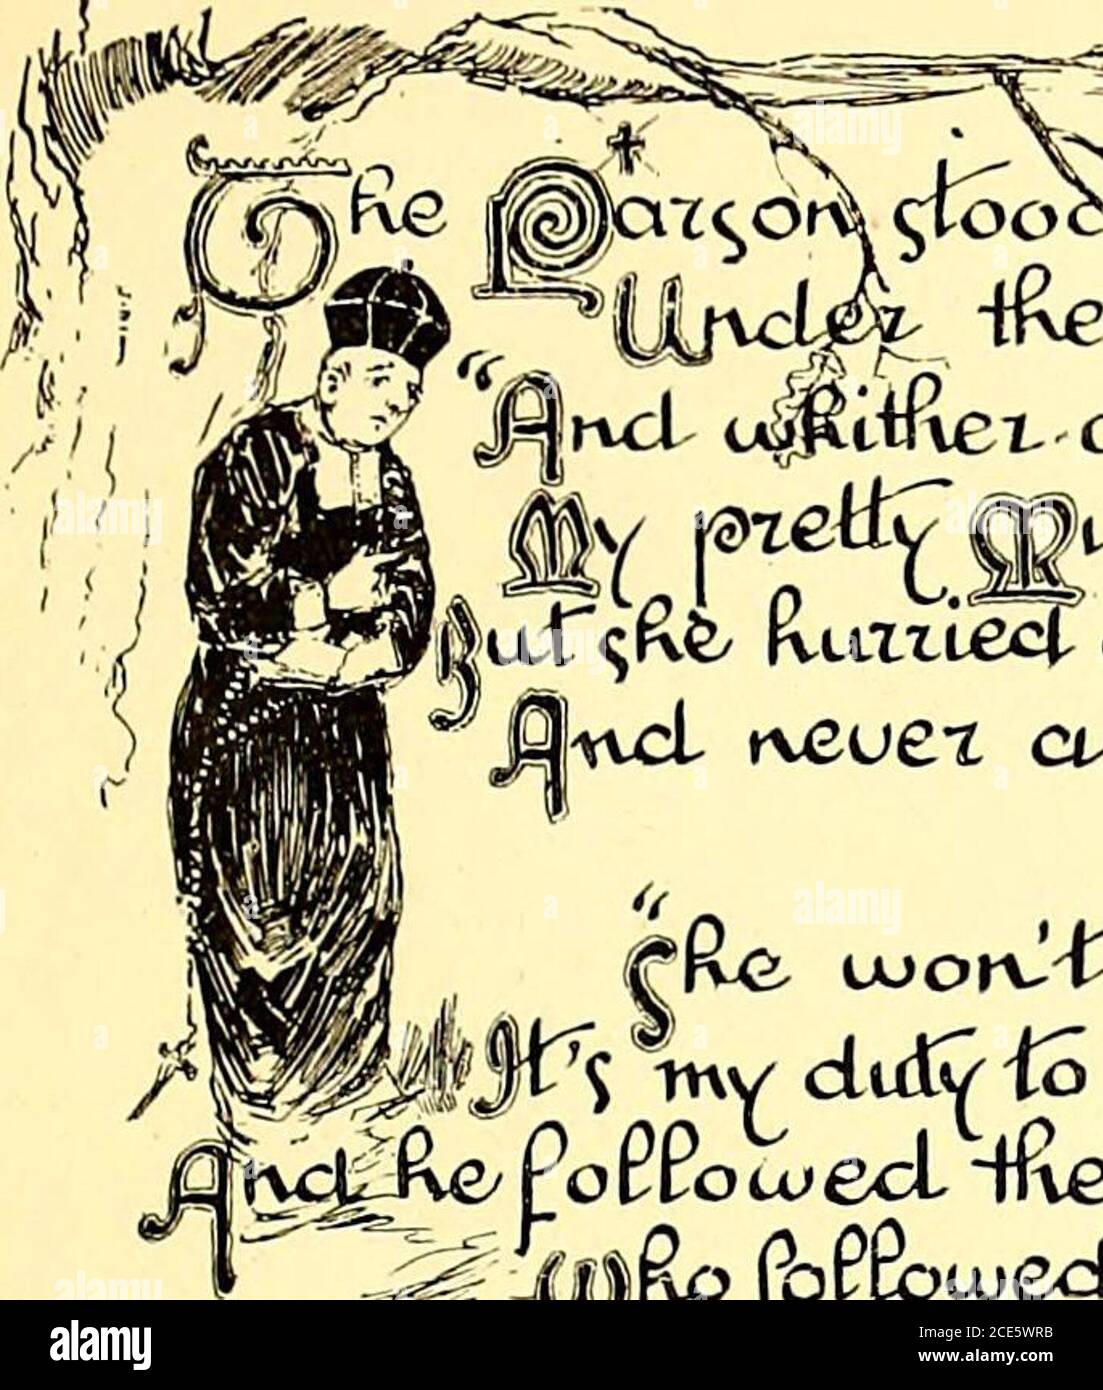 The Parson stood
Under the
"And whither
My pretty
But she hurried
And never
"She won't
It's my duty to
And he followed the
who followed
alamy
Image ID: 2CE5WRB
www.alamy.com